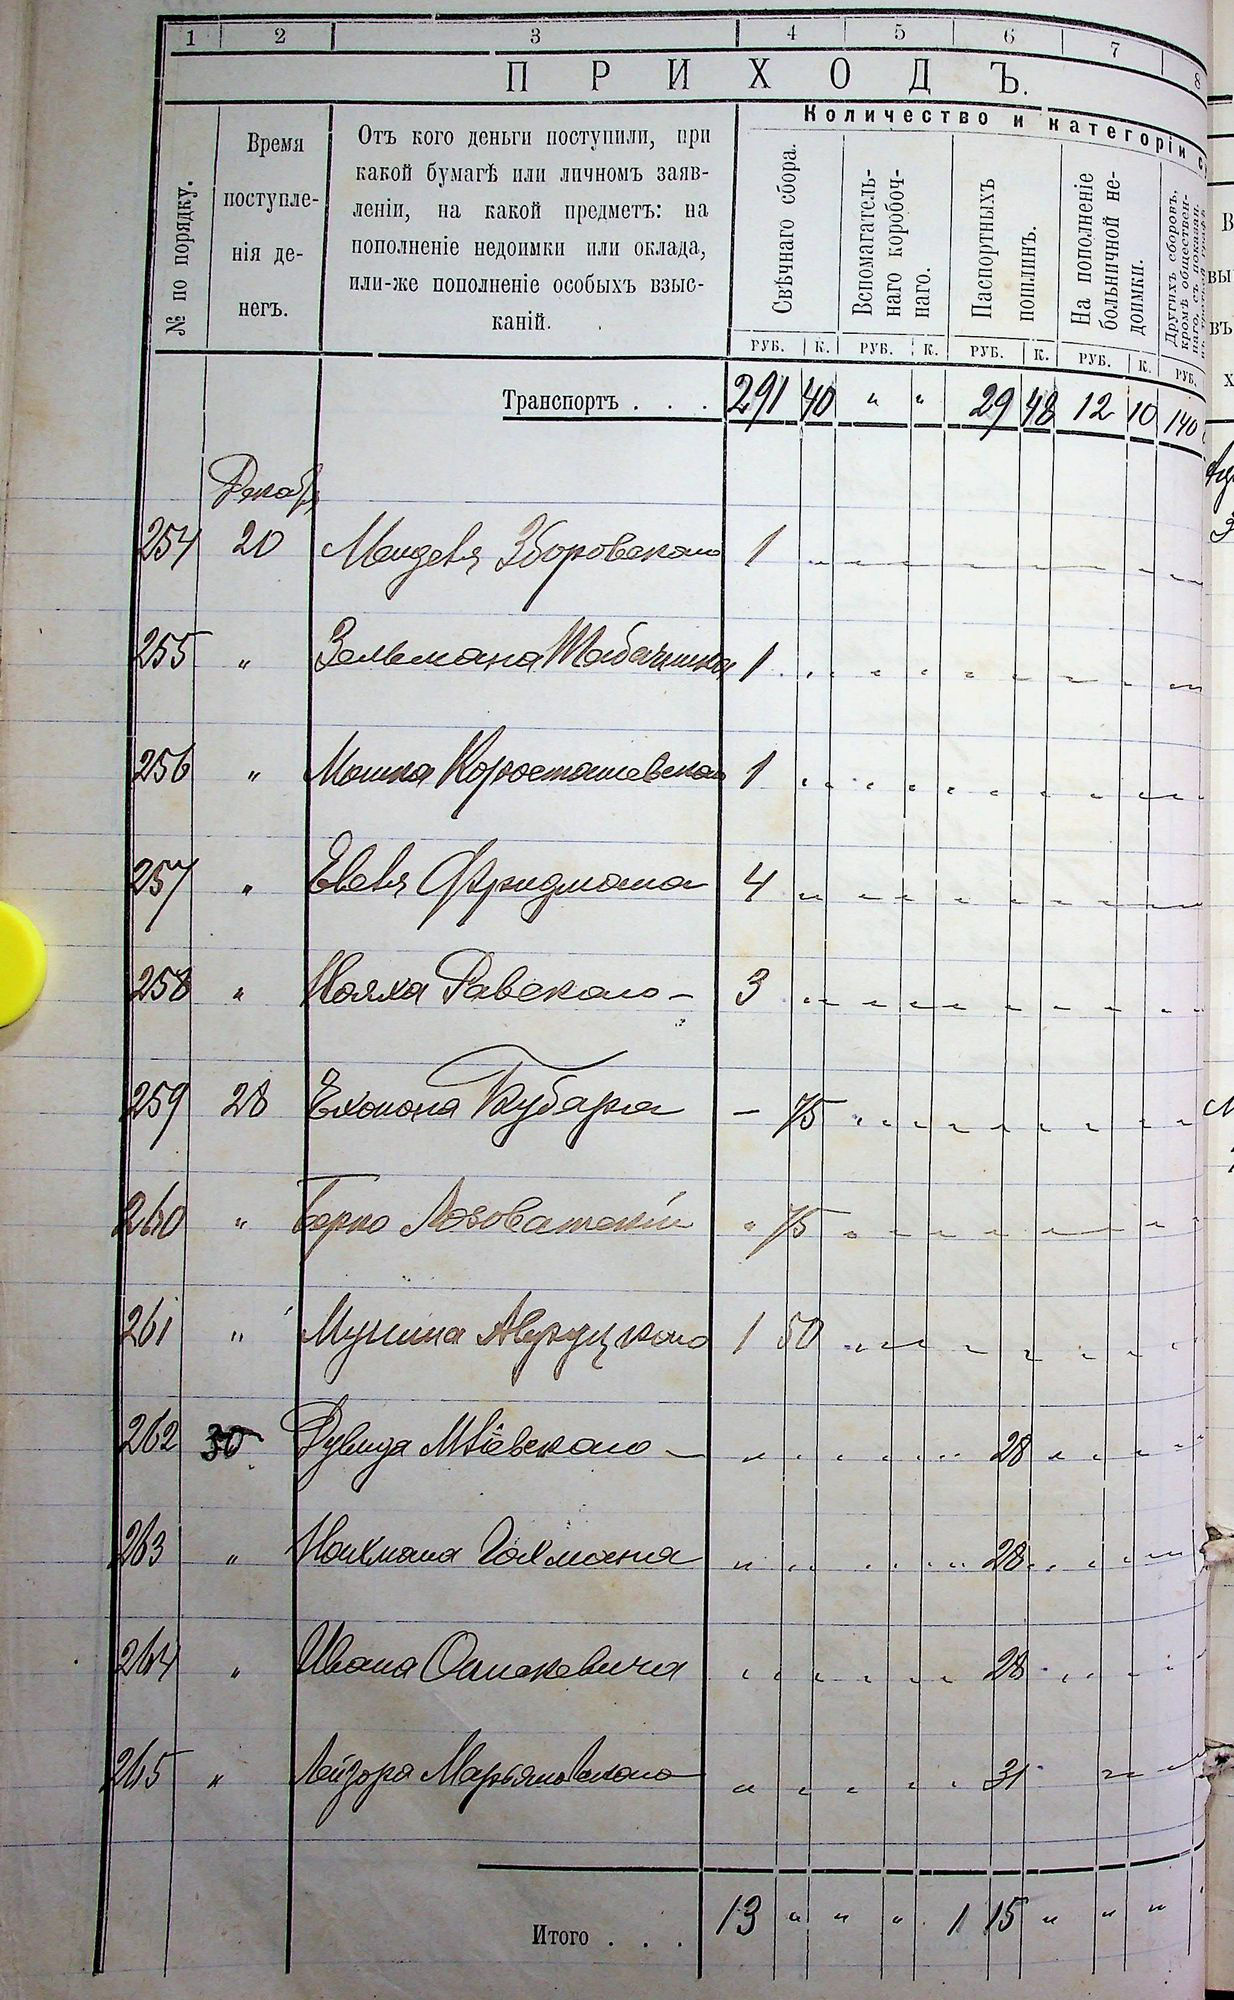 1 2 3 4 5 6 7 8
ПРИХОДЪ.
№ по порядку.
Время
поступле-
нія де-
негъ.
Отъ кого деньги поступили, при
какой бумагѣ или личномъ заяв-
леніи, на какой предметъ: на
пополненіе недоимки или оклада,
или-же пополненіе особыхъ взыс-
каній.
Количество и категоріи с
Свѣчнаго сбора.
Вспомагатель-
наго коробоч-
наго.
Паспортныхъ
пошлинъ.
На пополненіе
больничной не-
доимки.
Другихъ сборовъ,
кромѣ обществен-
наго, съ показан.
РУБ. К. РУБ. К. РУБ. К. РУБ. К. РУБ.
Транспортъ . . . 291 40 " " 29 48 12 10 140
Декабр
254 20 Мордка Зборовскаго 1
255 " Зельмана Табачника 1
256 " Мошка Коросташевскаго 1
257 " Евеля Фридмана 4
258 " Равскаго 3
259 28 75
260 " Берко Лозоватскій " 75
261 " 1 50
262 30 28
263 " Нахмана Гохмана 28
264 " Ивана 28
265 " Лейзора Марьяновскаго 31
Итого . . . 13 " " " 1 15 " " "